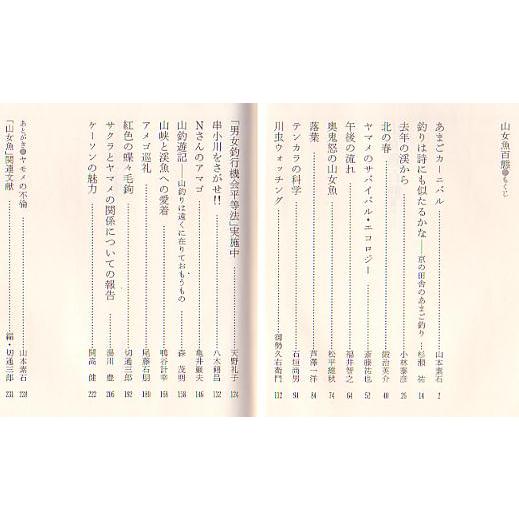 山女魚百態●もくじ
あまごカーニバル 山本素石 2
釣りは詩にも似たるかな——京の田舎のあまご釣り 杉瀬 祐 14
去年の渓から 小林泰彦 26
北の春 鍛治英介 40
ヤマメのサバイバル・エコロジー 斎藤祐也 52
午後の流れ 福井智之 64
奥鬼怒の山女魚 松平維秋 74
落葉 芦澤一洋 84
テンカラの科学 石垣尚男 94
川虫ウォッチング 御勢久右衛門 112
「男女釣行機会平等法」実施中 天野礼子 124
串小川をさがせ!! 八木 132
Nさんのアマゴ 亀井巌夫 146
山釣遊記——山釣りは遠くに在りておもうもの 森 茂明 158
山峡と渓魚への愛着 鴨谷計幸 168
アメゴ巡礼 尾藤石朋 180
紅色の蝶々毛鉤 切通三郎 192
サクラとヤマメの関係についての報告 湯川 豊 206
ケーソンの魅力 開高 健 222
あとがき●ヤモメの不倫 山本素石 228
「山女魚」関連文献 編・切通三郎 231